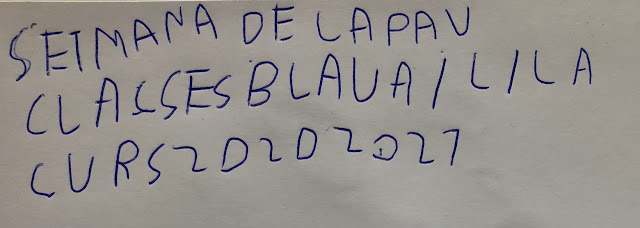 SETMANA DE LA PAU
CLASSES BLAVA I LILA
CURS 2020 2021